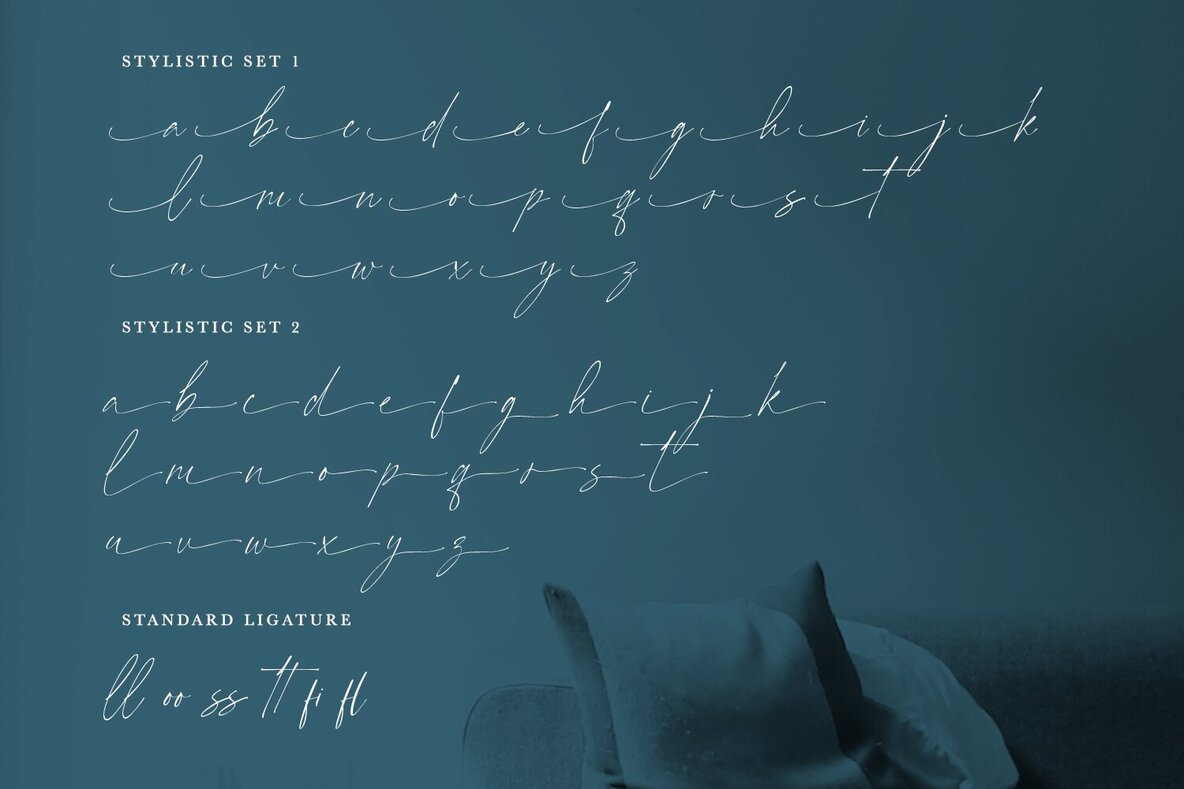 STYLISTIC SET 1
a b c d e f g h i j k
l m n o p q r s t
u v w x y z
STYLISTIC SET 2
a b c d e f g h i j k
l m n o p q r s t
u v w x y z
STANDARD LIGATURE
ll oo ss tt fi fl